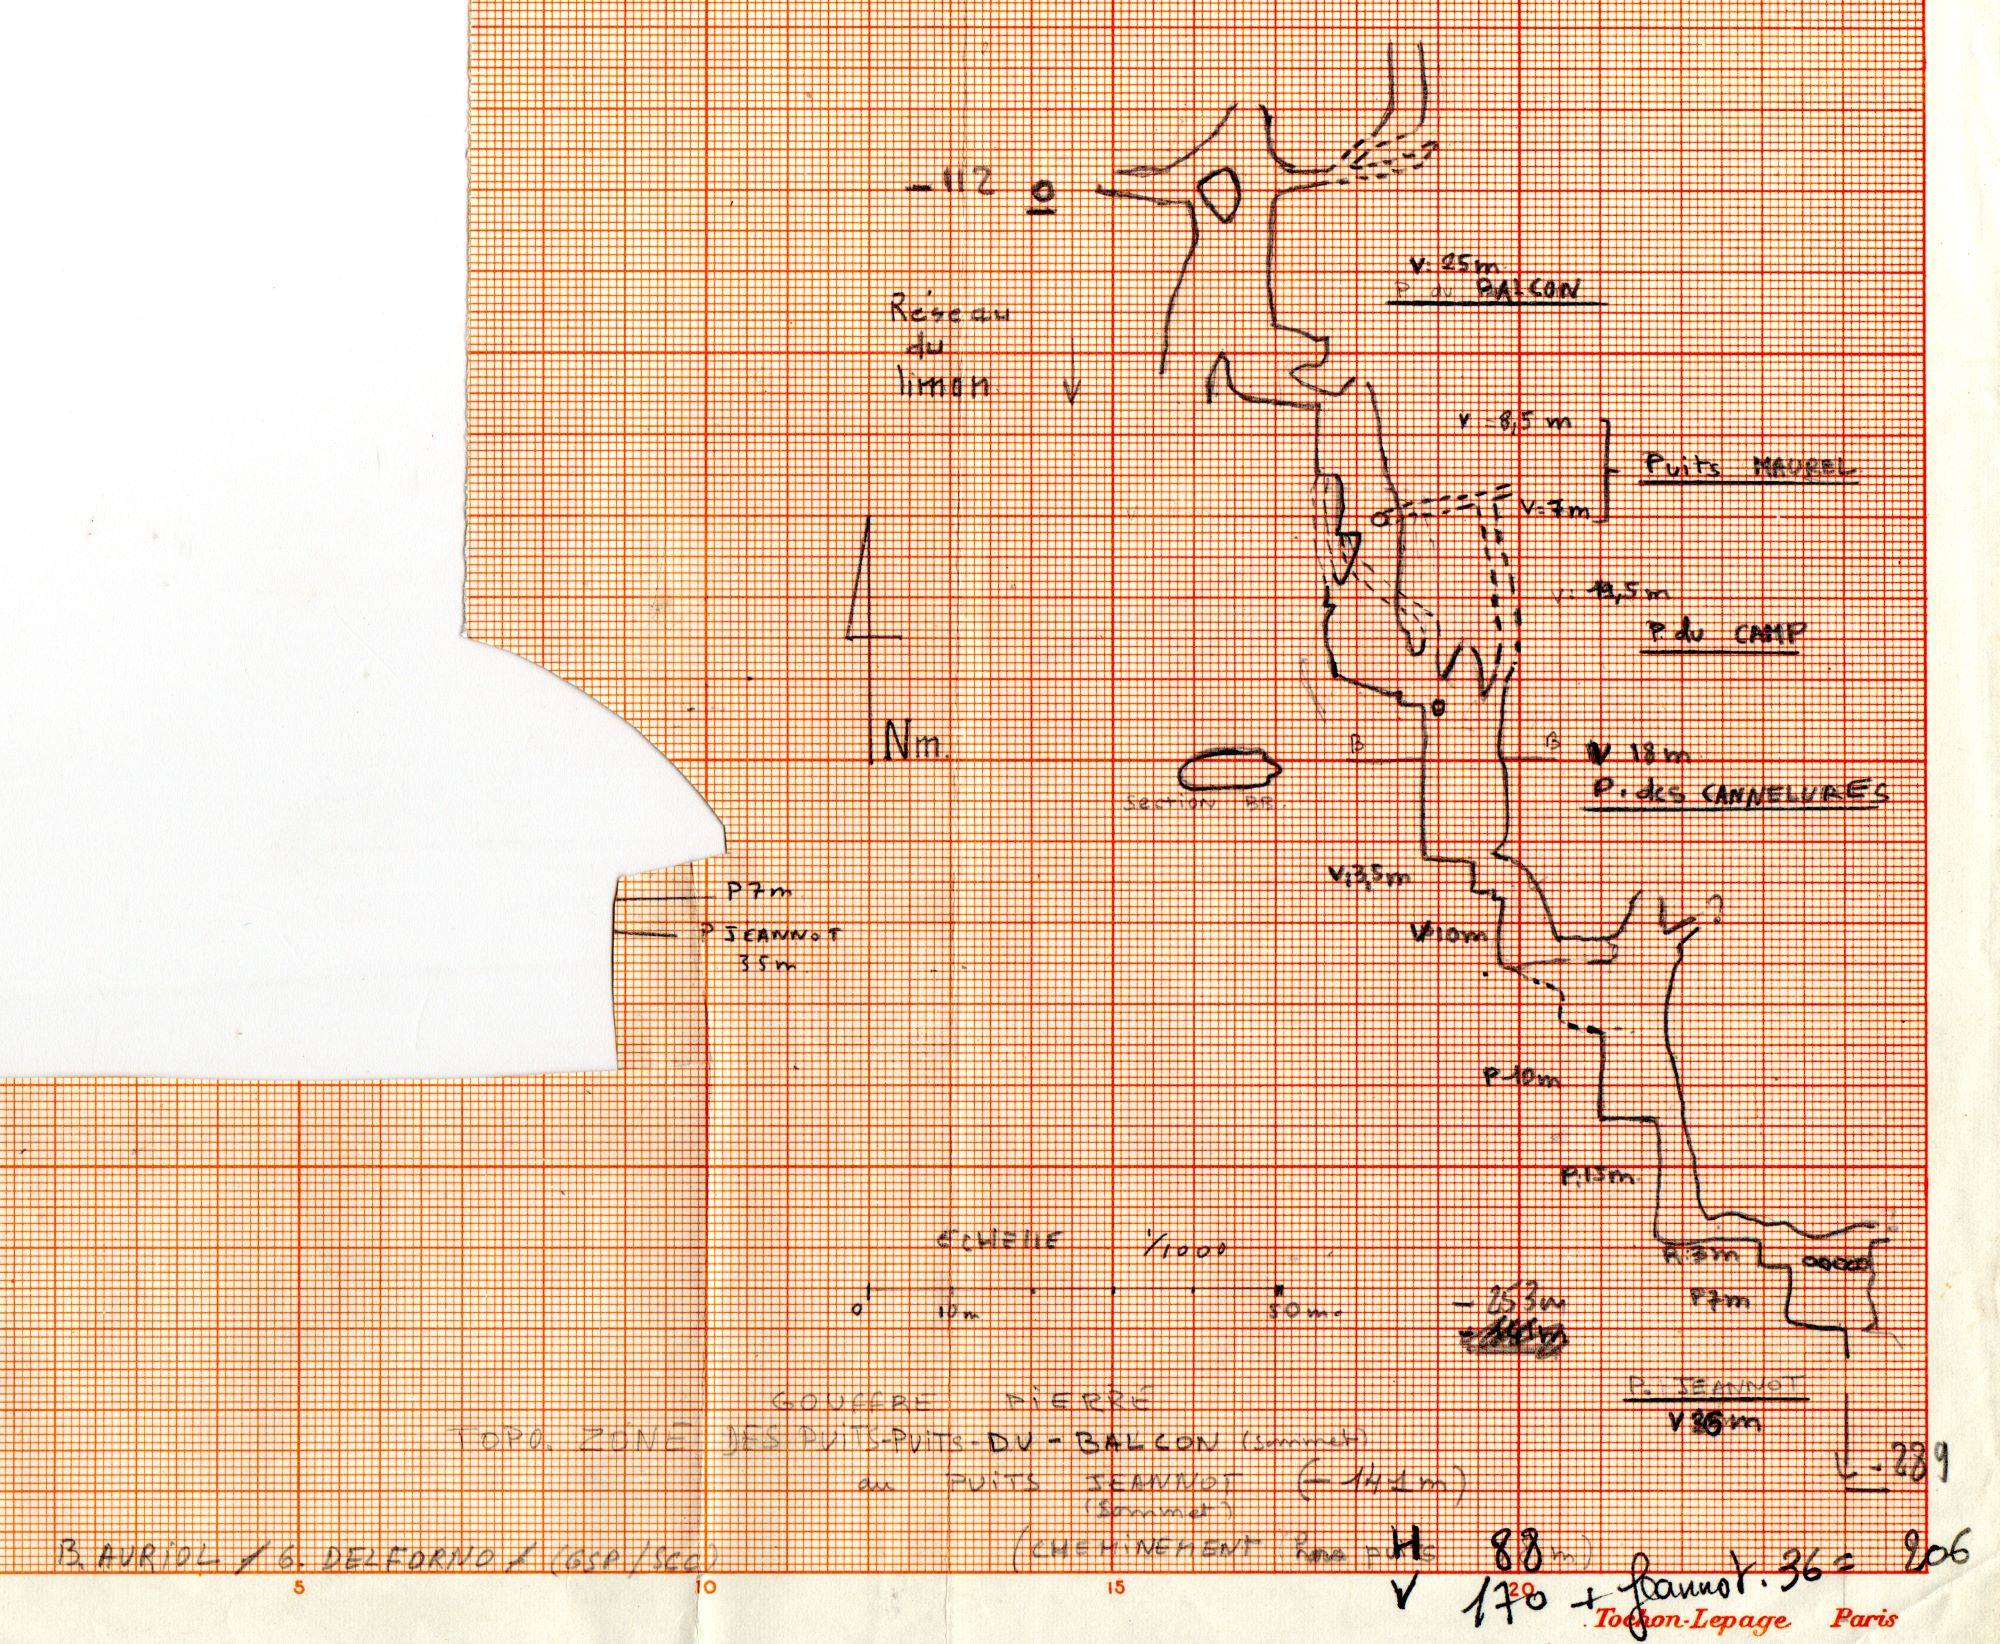 -112 0
V: 25m
P. du BALCON
Réseau
du
limon
V = 8,5 m
Puits MAUREL
V=7m
P. du CAMP
Nm.
B B
V 18m
P. des CANNELURES
Section BB.
V:3,5m
P 7m
P JEANNOT
35m
V 10m
?
P 10m
P.15m
ECHELLE 1/1000
0 10m 50m.
R:3m
P7m
- 253m
P. JEANNOT
V 36m
- 289
GOUFFRE PIERRE
TOPO. ZONE DES PUITS-PUITS-DU-BALCON (sommet)
au PUITS JEANNOT (-141m)
(sommet)
B. AURIOL / G. DELFORNO / (GSP/SCC)
(CHEMINEMENT
H 88
V 170 + Jeannot. 36 = 206
5 10 15 20
Tochon-Lepage Paris